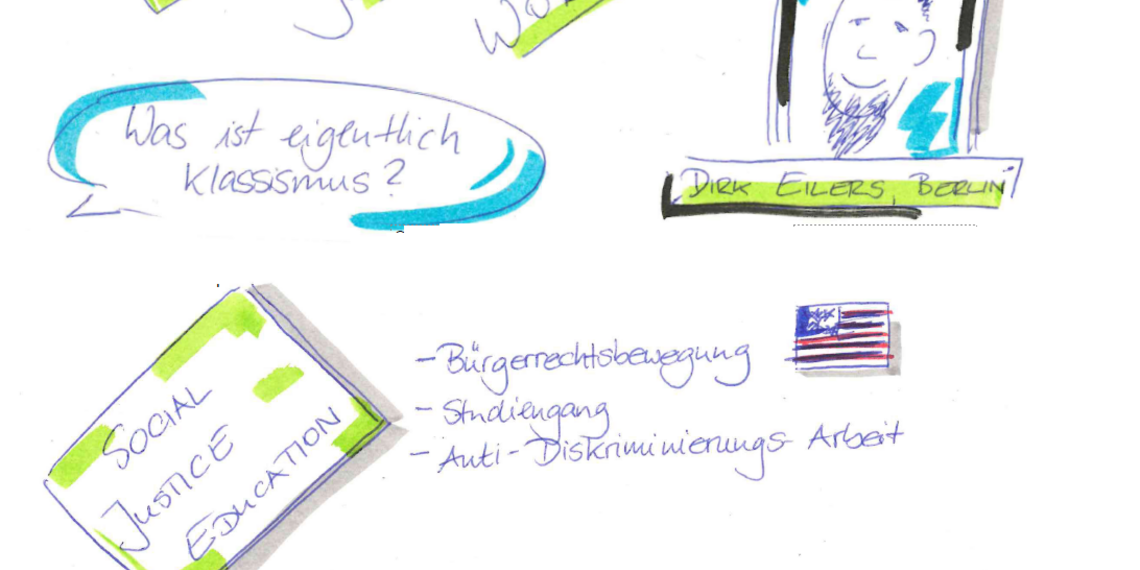 Was ist eigentlich
Klassismus?
DIRK EILERS, BERLIN
SOCIAL
JUSTICE
EDUCATION
- Bürgerrechtsbewegung
- Studiengang
- Anti-Diskriminierungs-Arbeit